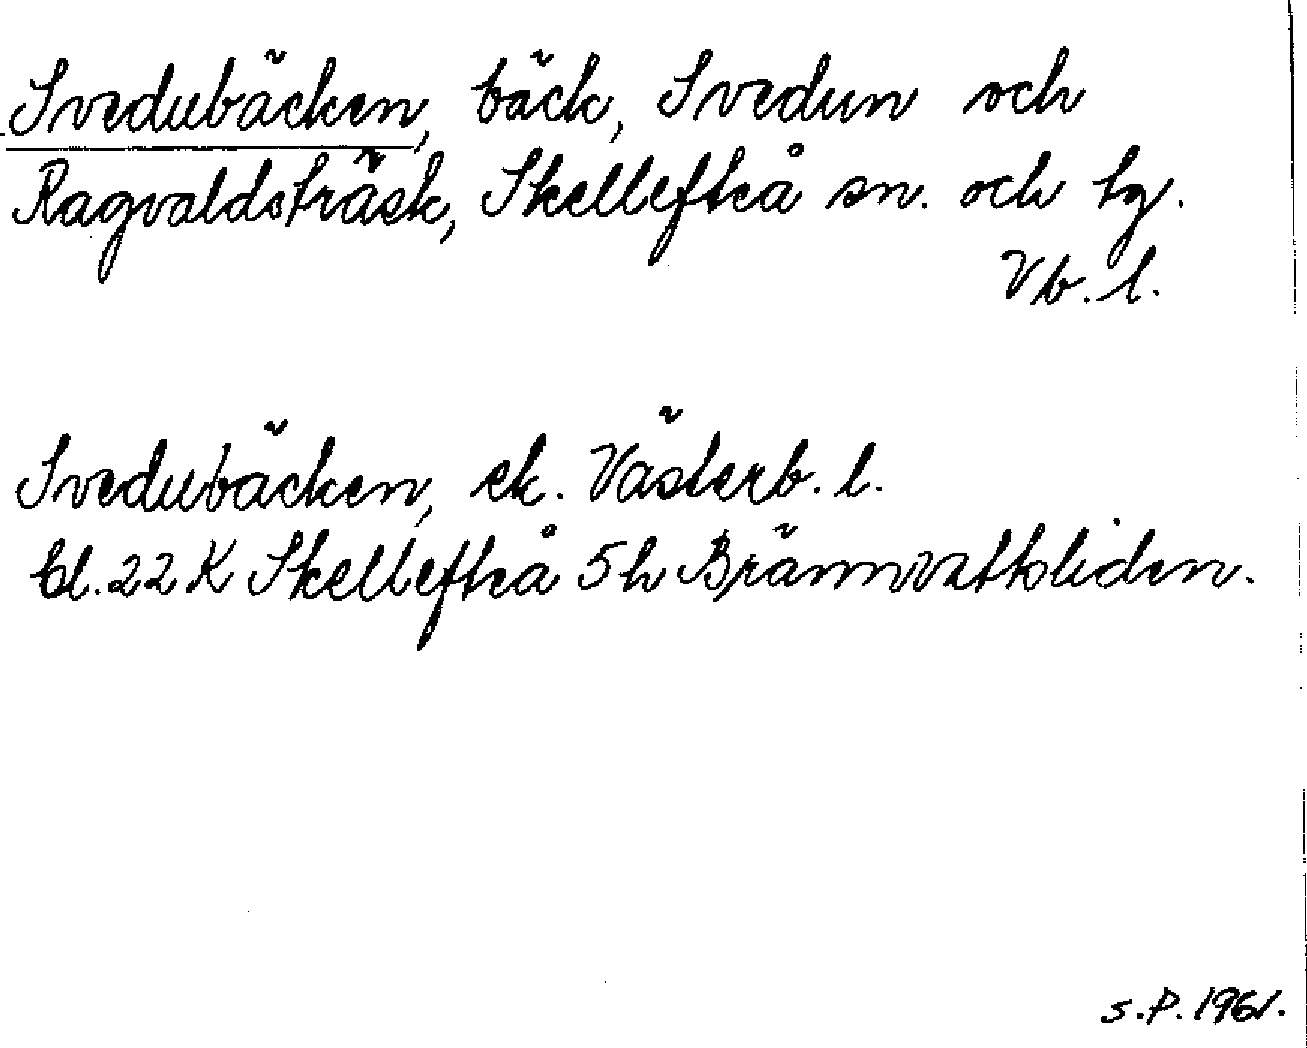 Svedubäcken, bäck, Svedun och
Ragvaldsträsk, Skellefteå sn. och tg.
Vb. l.
Svedubäcken, ek. Västerb. l.
bl. 22 K Skellefteå 5 h Brännvattsliden.
S.P. 1961.